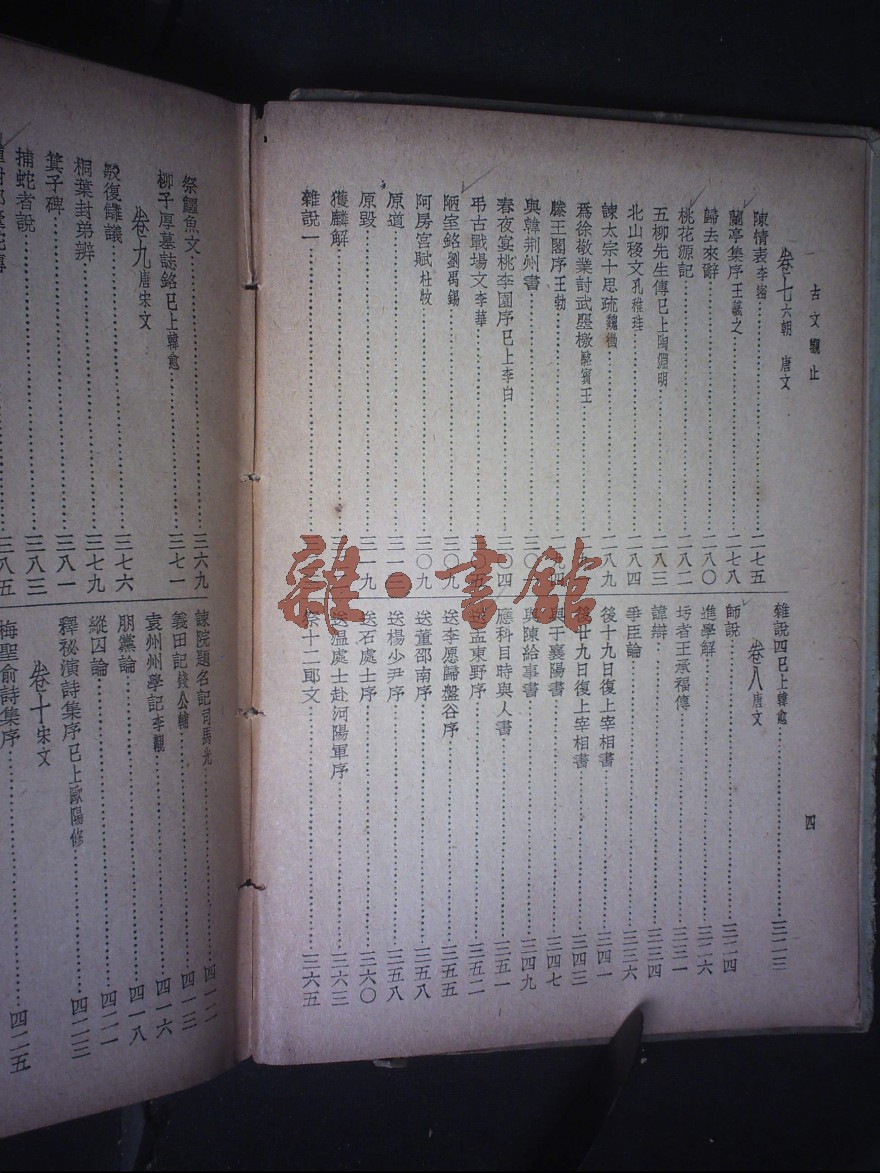 古文觀止
四
卷七 六朝 唐文
陳情表 李密 二七五
蘭亭集序 王羲之 二七八
歸去來辭 二八〇
桃花源記 二八二
五柳先生傳 已上陶淵明 二八三
北山移文 孔稚珪 二八四
諫太宗十思疏 魏徵 二八九
爲徐敬業討武曌檄 駱賓王
滕王閣序 王勃
與韓荆州書
春夜宴桃李園序 已上李白 三〇四
弔古戰場文 李華
陋室銘 劉禹錫 三〇九
阿房宮賦 杜牧 三〇九
原道 三一三
原毀 三一九
獲麟解
雜說一
雜說四 已上韓愈 三二三
卷八 唐文
師說 三二四
進學解 三二六
圬者王承福傳 三三一
諱辯 三三四
爭臣論 三三六
後十九日復上宰相書 三四一
後廿九日復上宰相書 三四三
與于襄陽書 三四七
與陳給事書 三四九
應科目時與人書 三五一
送孟東野序 三五二
送李愿歸盤谷序 三五五
送董邵南序 三五八
送楊少尹序 三五八
送石處士序 三六〇
送温處士赴河陽軍序 三六三
祭十二郎文 三六五
祭鱷魚文 三六九
柳子厚墓誌銘 已上韓愈 三七一
卷九 唐宋文
駁復讎議 三七六
桐葉封弟辨 三七九
箕子碑 三八一
捕蛇者說 三八三
三八五
諫院題名記 司馬光 四一二
義田記 錢公輔 四一三
袁州州學記 李覯 四一六
朋黨論 四一八
縱囚論 四二一
釋祕演詩集序 已上歐陽修 四二三
卷十 宋文
梅聖俞詩集序 四二五
雜·書館